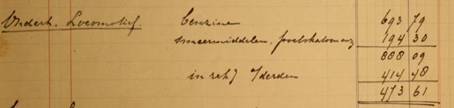 Onderh. Locomotief benzine 693 79
smeermiddelen, poetskatoen enz 194 30
888 09
in rek? derden 414 48
473 61